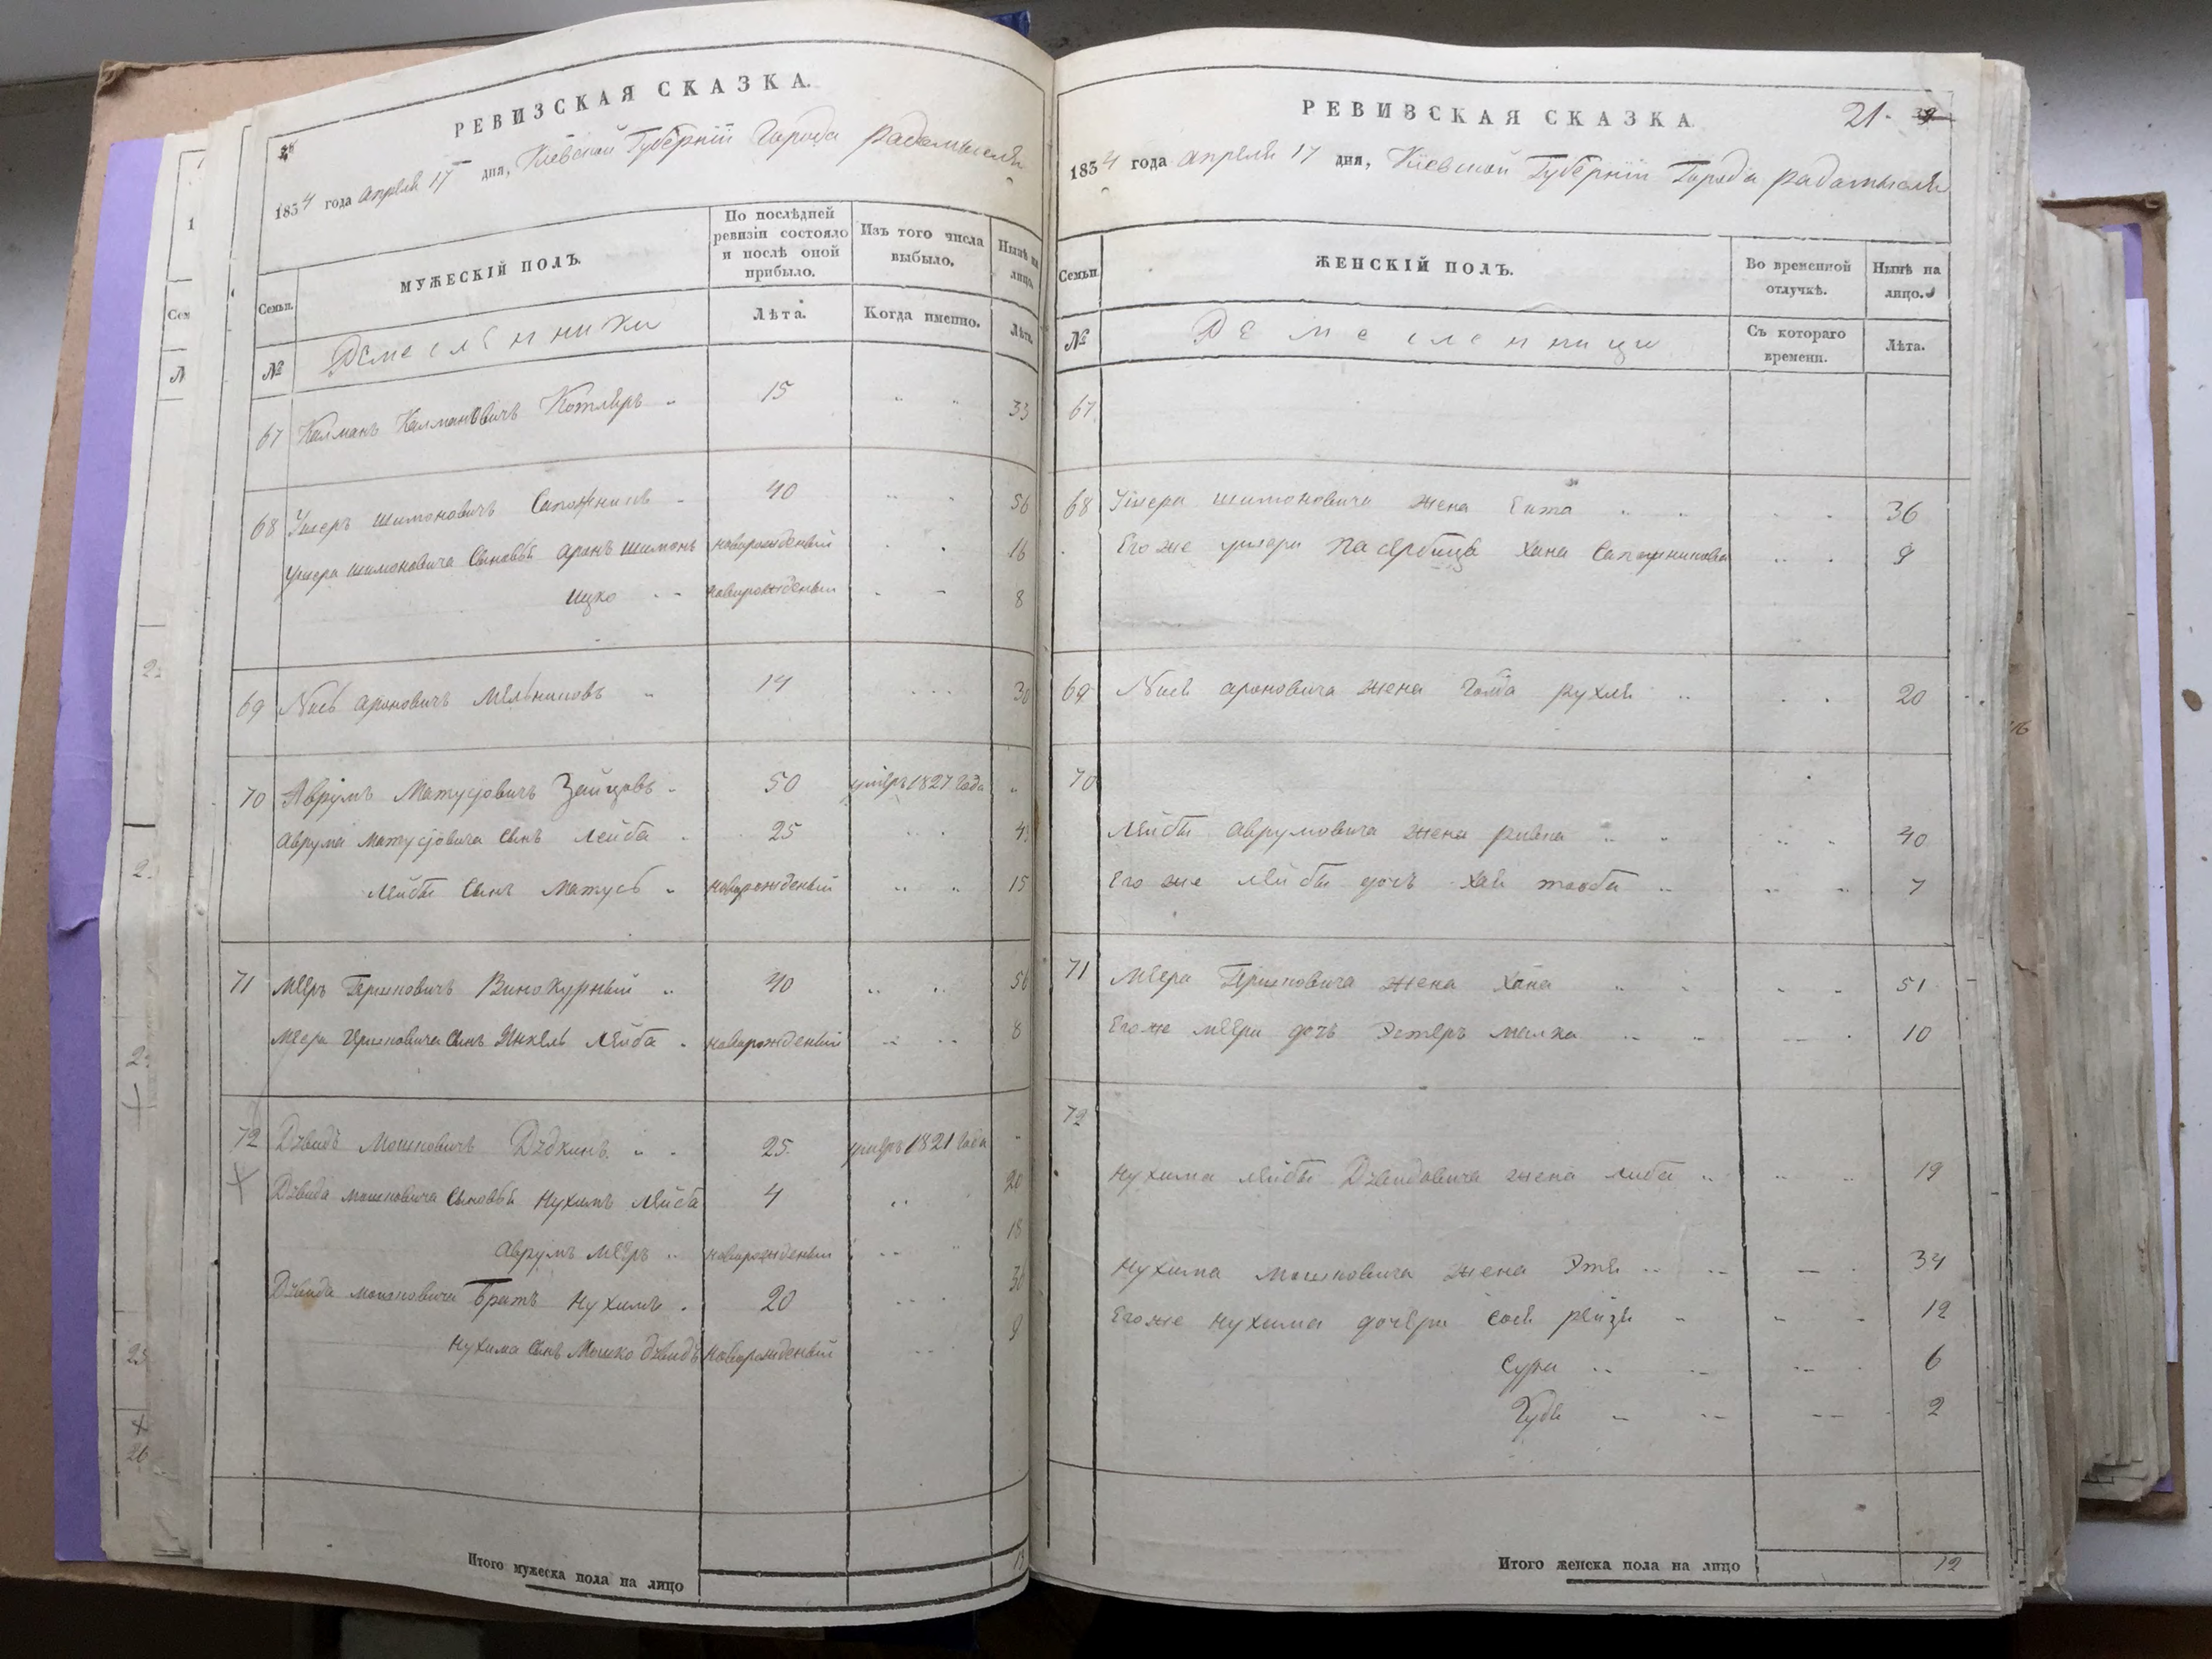 РЕВИЗСКАЯ СКАЗКА.
1834 года апреля 17 дня, Кіевской Губерніи Города радамысля
Семьи.
МУЖЕСКІЙ ПОЛЪ.
По послѣдней ревизіи состояло и послѣ оной прибыло.
Изъ того числа выбыло.
Нынѣ на лицо.
№
Лѣта.
Когда именно.
Лѣта.
67 Калманъ Калмановичъ Котляръ 15 33
68 Ушеръ шимоновичъ Сапожникъ 40 56
Ушера шимоновича Сыновья аронъ шимонъ новорожденый 16
Ицко новорожденый 8
69 ароновичъ Мельниковъ 14 30
70 Аврумъ Матусовичъ Зайцовъ 50 умеръ 1827 года
Аврума матусовича Сынъ Лейба 25
Лейбы Сынъ Матусъ новорожденый 15
71 Меръ Гершковичъ Винокурный 40 56
Меера Гершковича Сынъ Янкель Лейба новорожденый 8
72 Дэвидъ Мошковичъ 25 умеръ 1821 года
Дэвида мошковича Сыновья Нухимъ Лейба 4 20
Аврумъ Меръ новорожденый 18
Дэвида мошковича братъ Нухимъ 20 36
Нухима Сынъ Мошко дэвидъ новорожденый 9
Итого мужеска пола на лицо 13
РЕВИЗСКАЯ СКАЗКА
21
1834 года апреля 17 дня, Кіевской Губерніи Города радамысля
Семьи.
ЖЕНСКІЙ ПОЛЪ.
Во временной отлучкѣ.
Нынѣ на лицо.
№
Съ котораго времени.
Лѣта.
67
68 Ушера шимоновича жена Ента 36
Его же ушера падчерица Хана 9
69 ароновича жена рухля 20
70
Лейбы аврумовича жена ривка 40
Его же лейбы дочъ Хая тауба 7
71 Меера Гершковича жена Хана 51
Его же меера дочъ Эстеръ малка 10
72
Нухима лейбы Дэвидовича жена либа 19
Нухима мошковича жена Этя 34
Его же нухима дочери рейзя 12
Сура 6
2
Итого женска пола на лицо 12